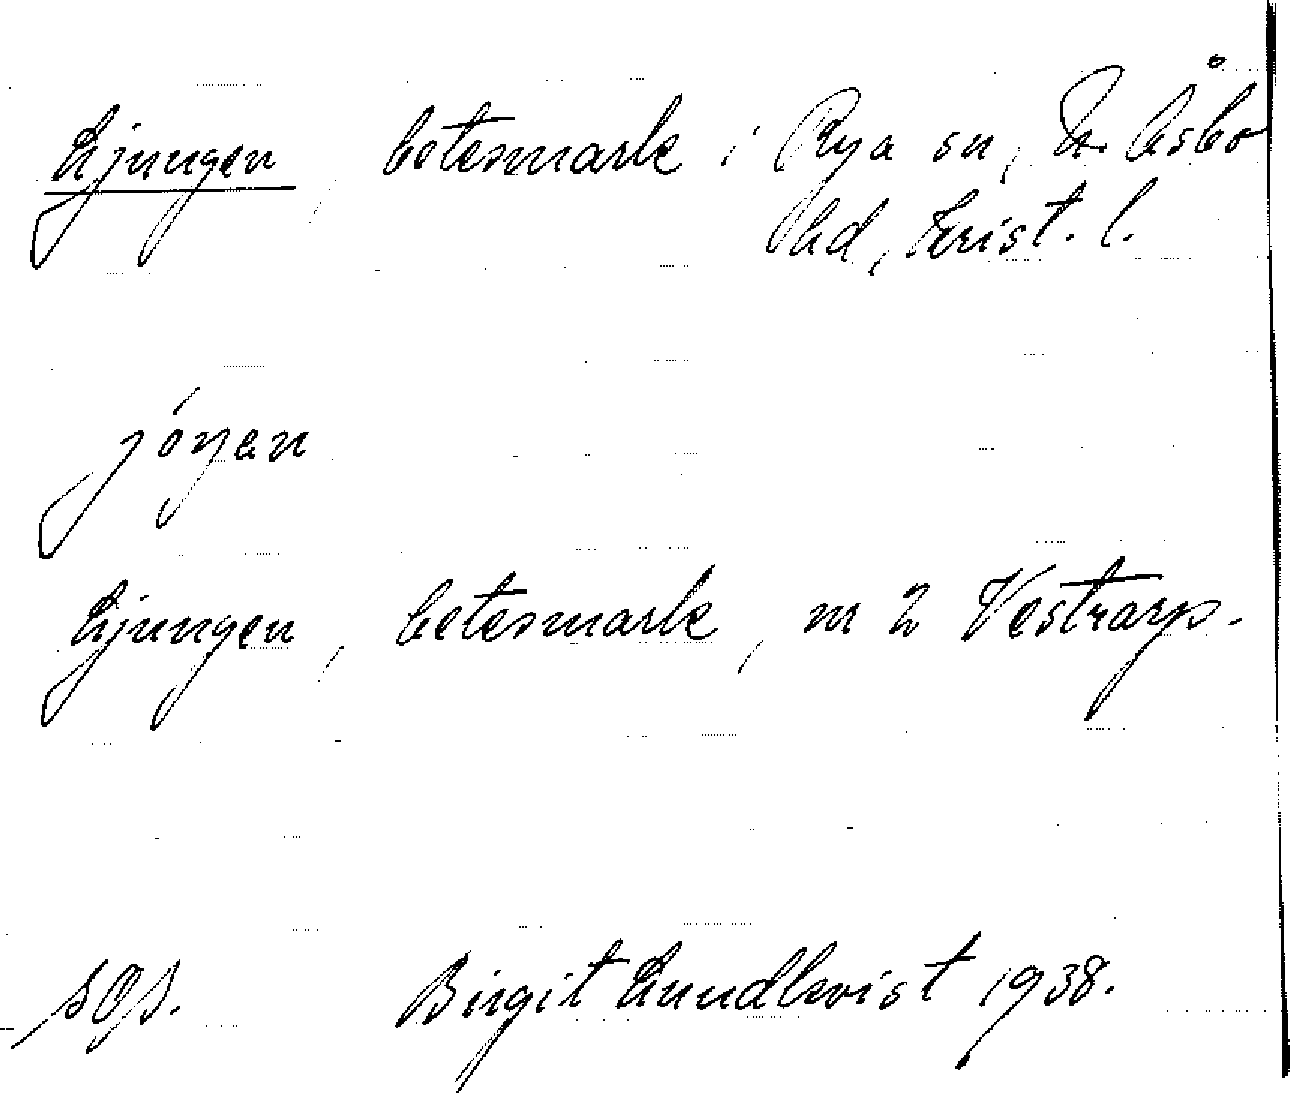 Ljungen, betesmark i Rya sn, N. Åsbo
hd, Krist. l.
jóŋen
Ljungen, betesmark, m 2 Vestrarp.
Birgit Lundkvist 1938.